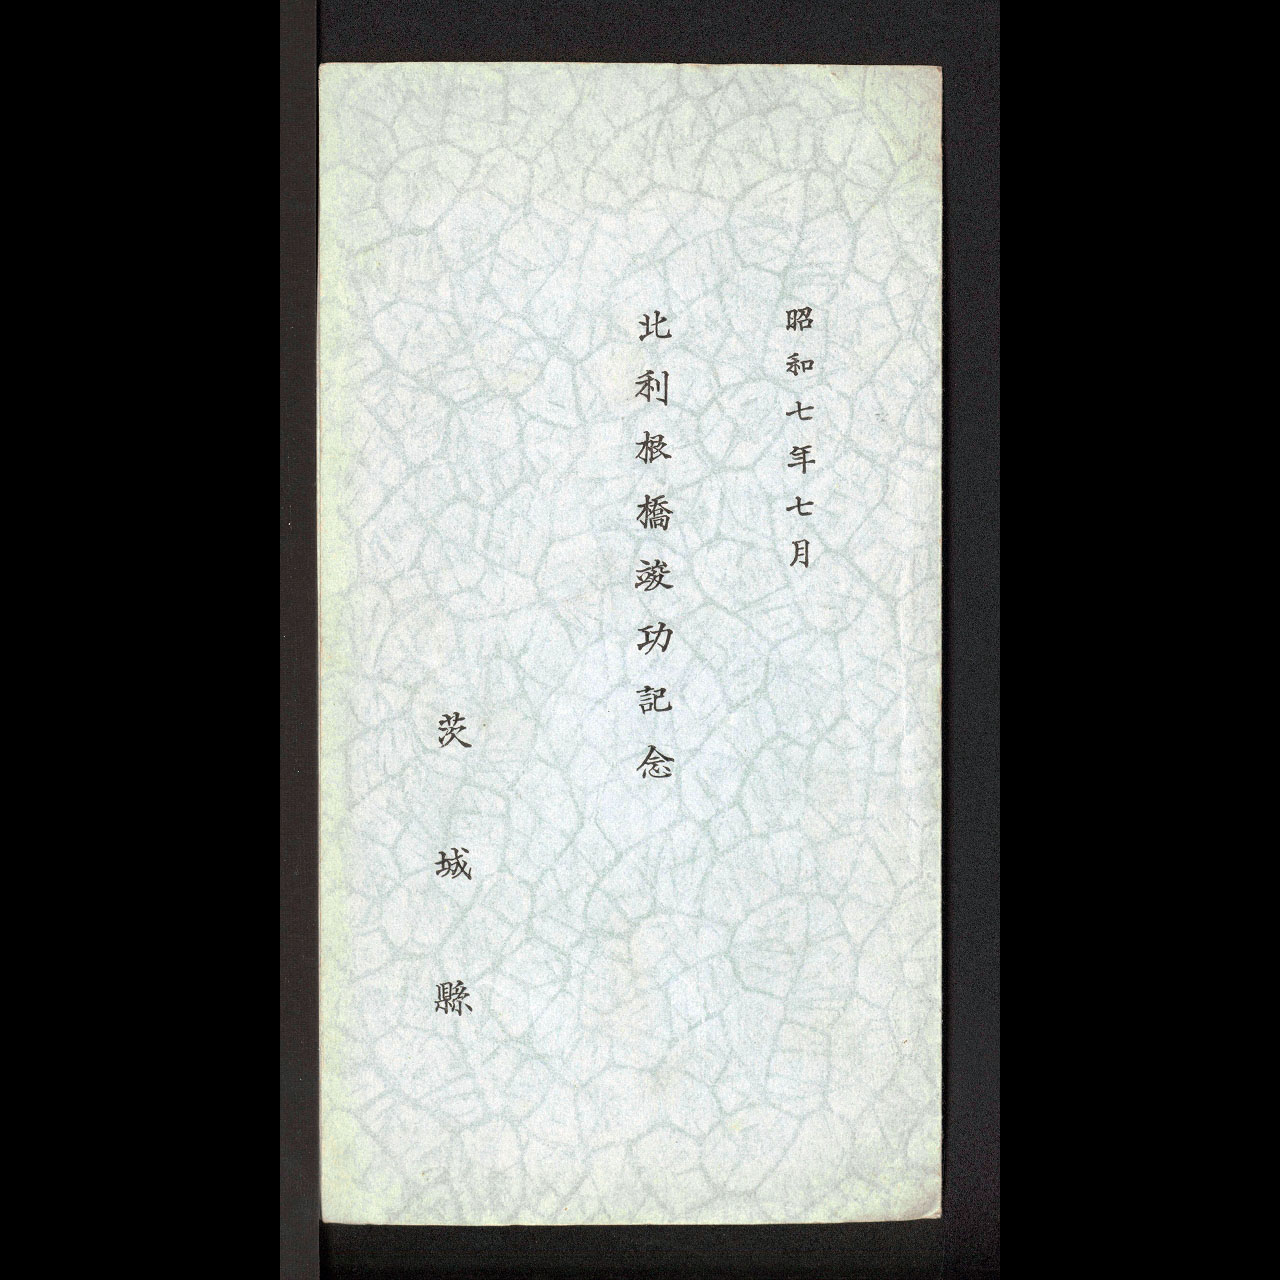 昭和七年七月
北利根橋竣功記念
茨城縣